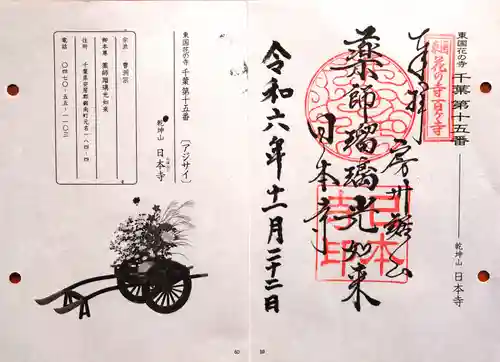 東国花の寺 千葉 第十五番
乾坤山 日本寺
東国花の寺百ヶ寺
奉拝
房州鋸山
薬師瑠璃光如来
日本寺
日本寺印
令和六年十一月二十二日
東国花の寺 千葉 第十五番 [アジサイ]
乾坤山 日本寺
宗派 曹洞宗
御本尊 薬師瑠璃光如来
住所 千葉県安房郡鋸南町元名一八四-四
電話 〇四七〇・五五・一一〇三